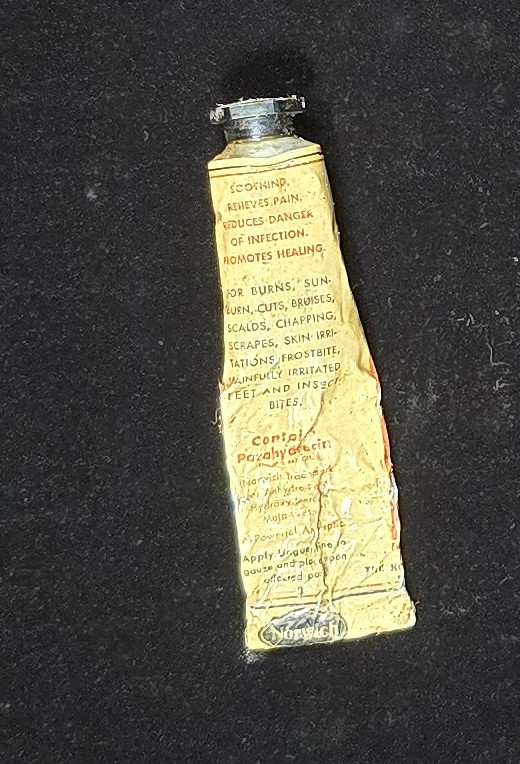 SOOTHING.
RELIEVES PAIN.
REDUCES DANGER
OF INFECTION.
PROMOTES HEALING.
FOR BURNS, SUN-
BURN, CUTS, BRUISES,
SCALDS, CHAPPING,
SCRAPES, SKIN IRRI-
TATIONS, FROSTBITE,
PAINFULLY IRRITATED
FEET AND INSECT
BITES.
Contains
Parahydrecin
(Norwich Trade Mark
A Powerful Antiseptic
Apply Unguentine to
gauze and place upon
affected part
THE N
3
NORWICH